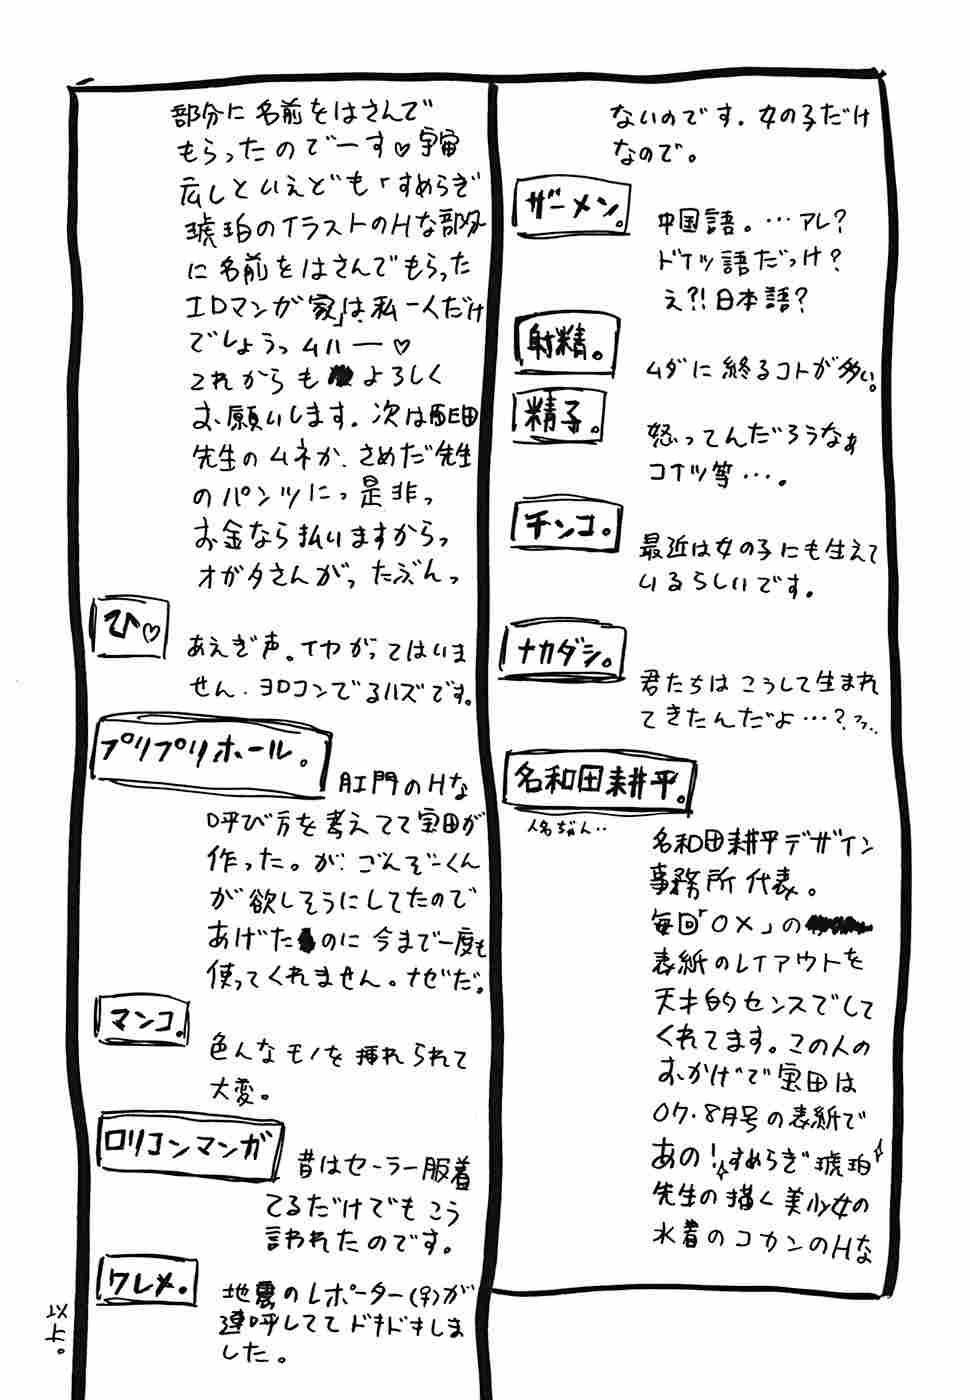 ないのです。女の子だけ
なので。
ザーメン。
中国語。…アレ？
ドイツ語だっけ？
え？！日本語？
射精。
ムダに終るコトが多い。
精子。
怒ってんだろうなぁ
コイツ等…。
チンコ。
最近は女の子にも生えて
いるらしいです。
ナカダシ。
君たちはこうして生まれ
てきたんだよ…？フフ..
名和田耕平。
人名ぢゃん..
名和田耕平デザイン
事務所代表。
毎回「OX」の
表紙のレイアウトを
天才的センスでして
くれてます。この人の
おかげで宝田は
07.8月号の表紙で
あの！☆すめらぎ琥珀☆
先生の描く美少女の
水着のコカンのHな
部分に名前をはさんで
もらったのでーす♡宇宙
広しといえども「すめらぎ
琥珀のイラストのHな部分
に名前をはさんでもらった
エロマンガ家」は、私一人だけ
でしょうっムハー♡
これからもよろしく
お願いします。次は
先生のムネか、さめだ先生
のパンツにっ是非っ
お金なら払いますからっ
オガタさんがったぶんっ
ひ♡
あえぎ声。イヤがってはいま
せん。ヨロコンでるハズです。
プリプリホール。
肛門のHな
呼び方を考えてて宝田が
作った。が、ごんぞーくん
が欲しそうにしてたので
あげたのに今まで一度も
使ってくれません。ナゼだ。
マンコ。
色んなモノを挿れられて
大変。
ロリコンマンガ
昔はセーラー服着
てるだけでもこう
言われたのです。
ワレメ。
地震のレポーター(♀)が
連呼しててドキドキしま
した。